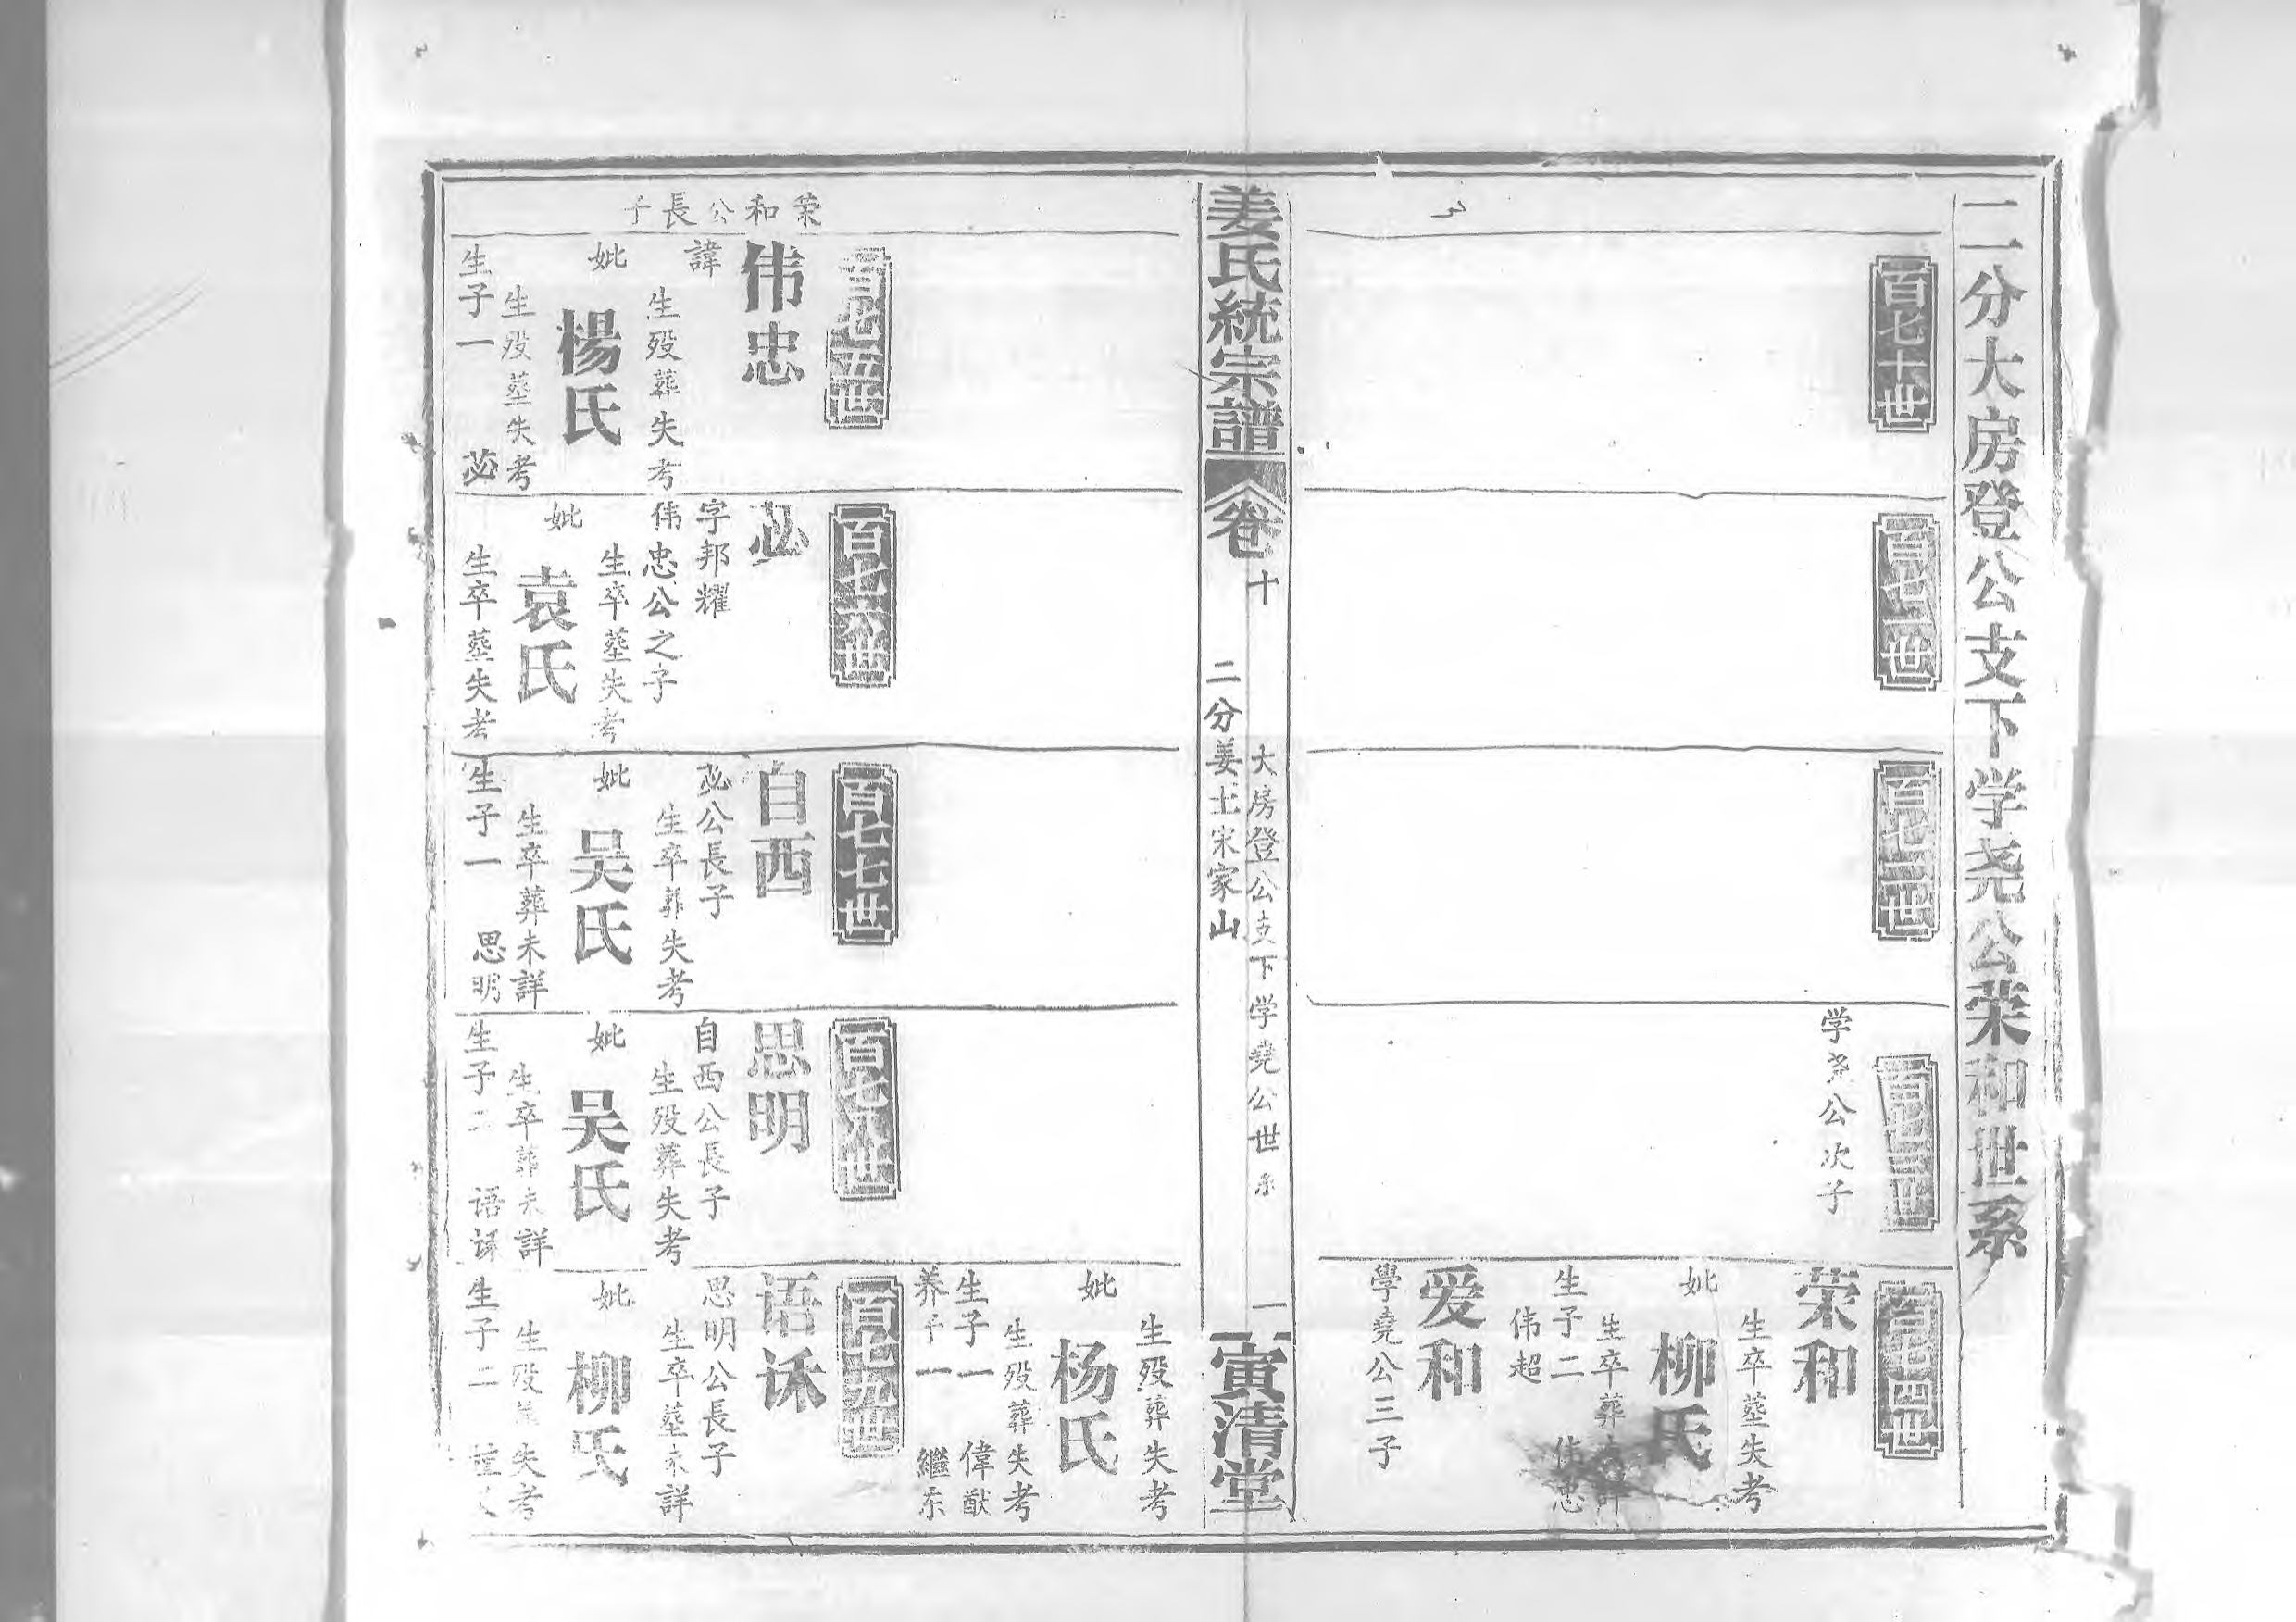 二分大房登公支下学尧公荣和世系
百七十世
百七一世
百七二世
百七三世
学尧公次子
百七四世
荣和
生卒塟失考
妣
柳氏
生卒葬
生子二
伟忠
伟超
爱和
學堯公三子
姜氏統宗譜
卷十
大房登公支下学堯公世系
二分姜土宋家山
一
寅清堂
生殁葬失考
妣
杨氏
生殁葬失考
生子一
偉猷
养子一
繼东
荣和公長子
百七五世
伟忠
諱
生殁葬失考
妣
楊氏
生殁塟失考
生子一
苾
百七六世
苾
字邦耀
伟忠公之子
生卒塟失考
妣
袁氏
生卒塟失考
百七七世
自西
苾公長子
生卒葬失考
妣
吴氏
生卒葬未詳
生子一
思明
百七八世
思明
自西公長子
生殁葬失考
妣
吴氏
生卒葬未詳
生子二
语
百七九世
语
思明公長子
生卒塟未詳
妣
柳氏
生殁塟失考
生子二